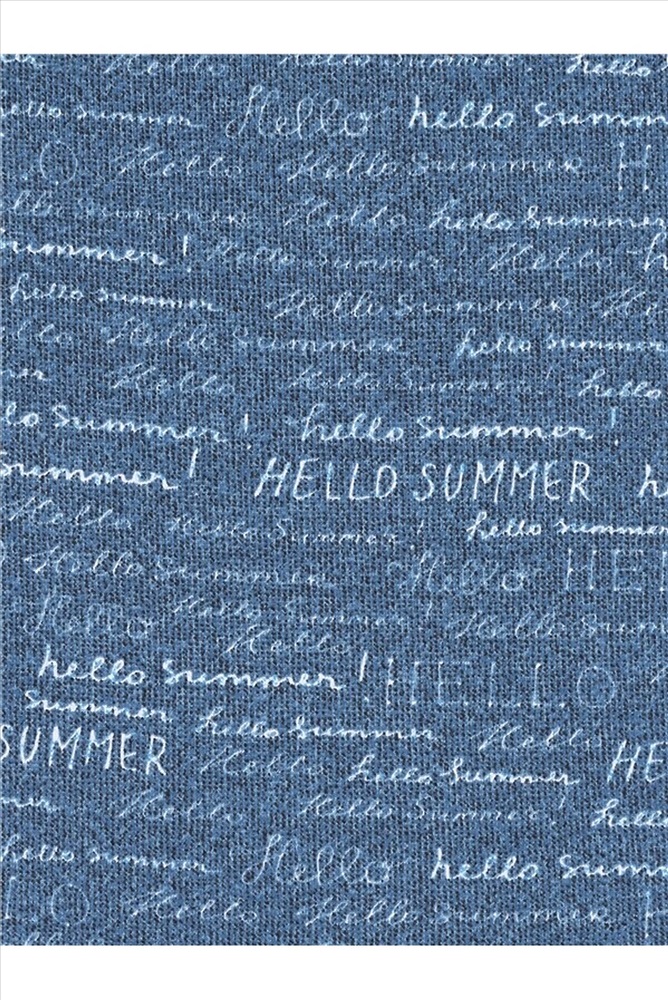 Hello Summer hello
hello summer Hello hello summer
O Hello Hello Summer H
hello Summer Hello hello summer
summer! Hello Summer Hello h
hello summer Hello Summer
Hello Summer hello summer
Hello Hello Summer! hello
lo summer! hello summer!
summer! HELLO SUMMER h
Hello Hello Summer! hello summer
Hello Summer Hello HE
Hello Hello Summer! Hello Sum
Hello
hello summer! HELLO
summer hello summer Hello
SUMMER Hello hello summer HE
Hello Hello Summer! hello
hello summer Hello hello summ
O Hello Hello Summer H